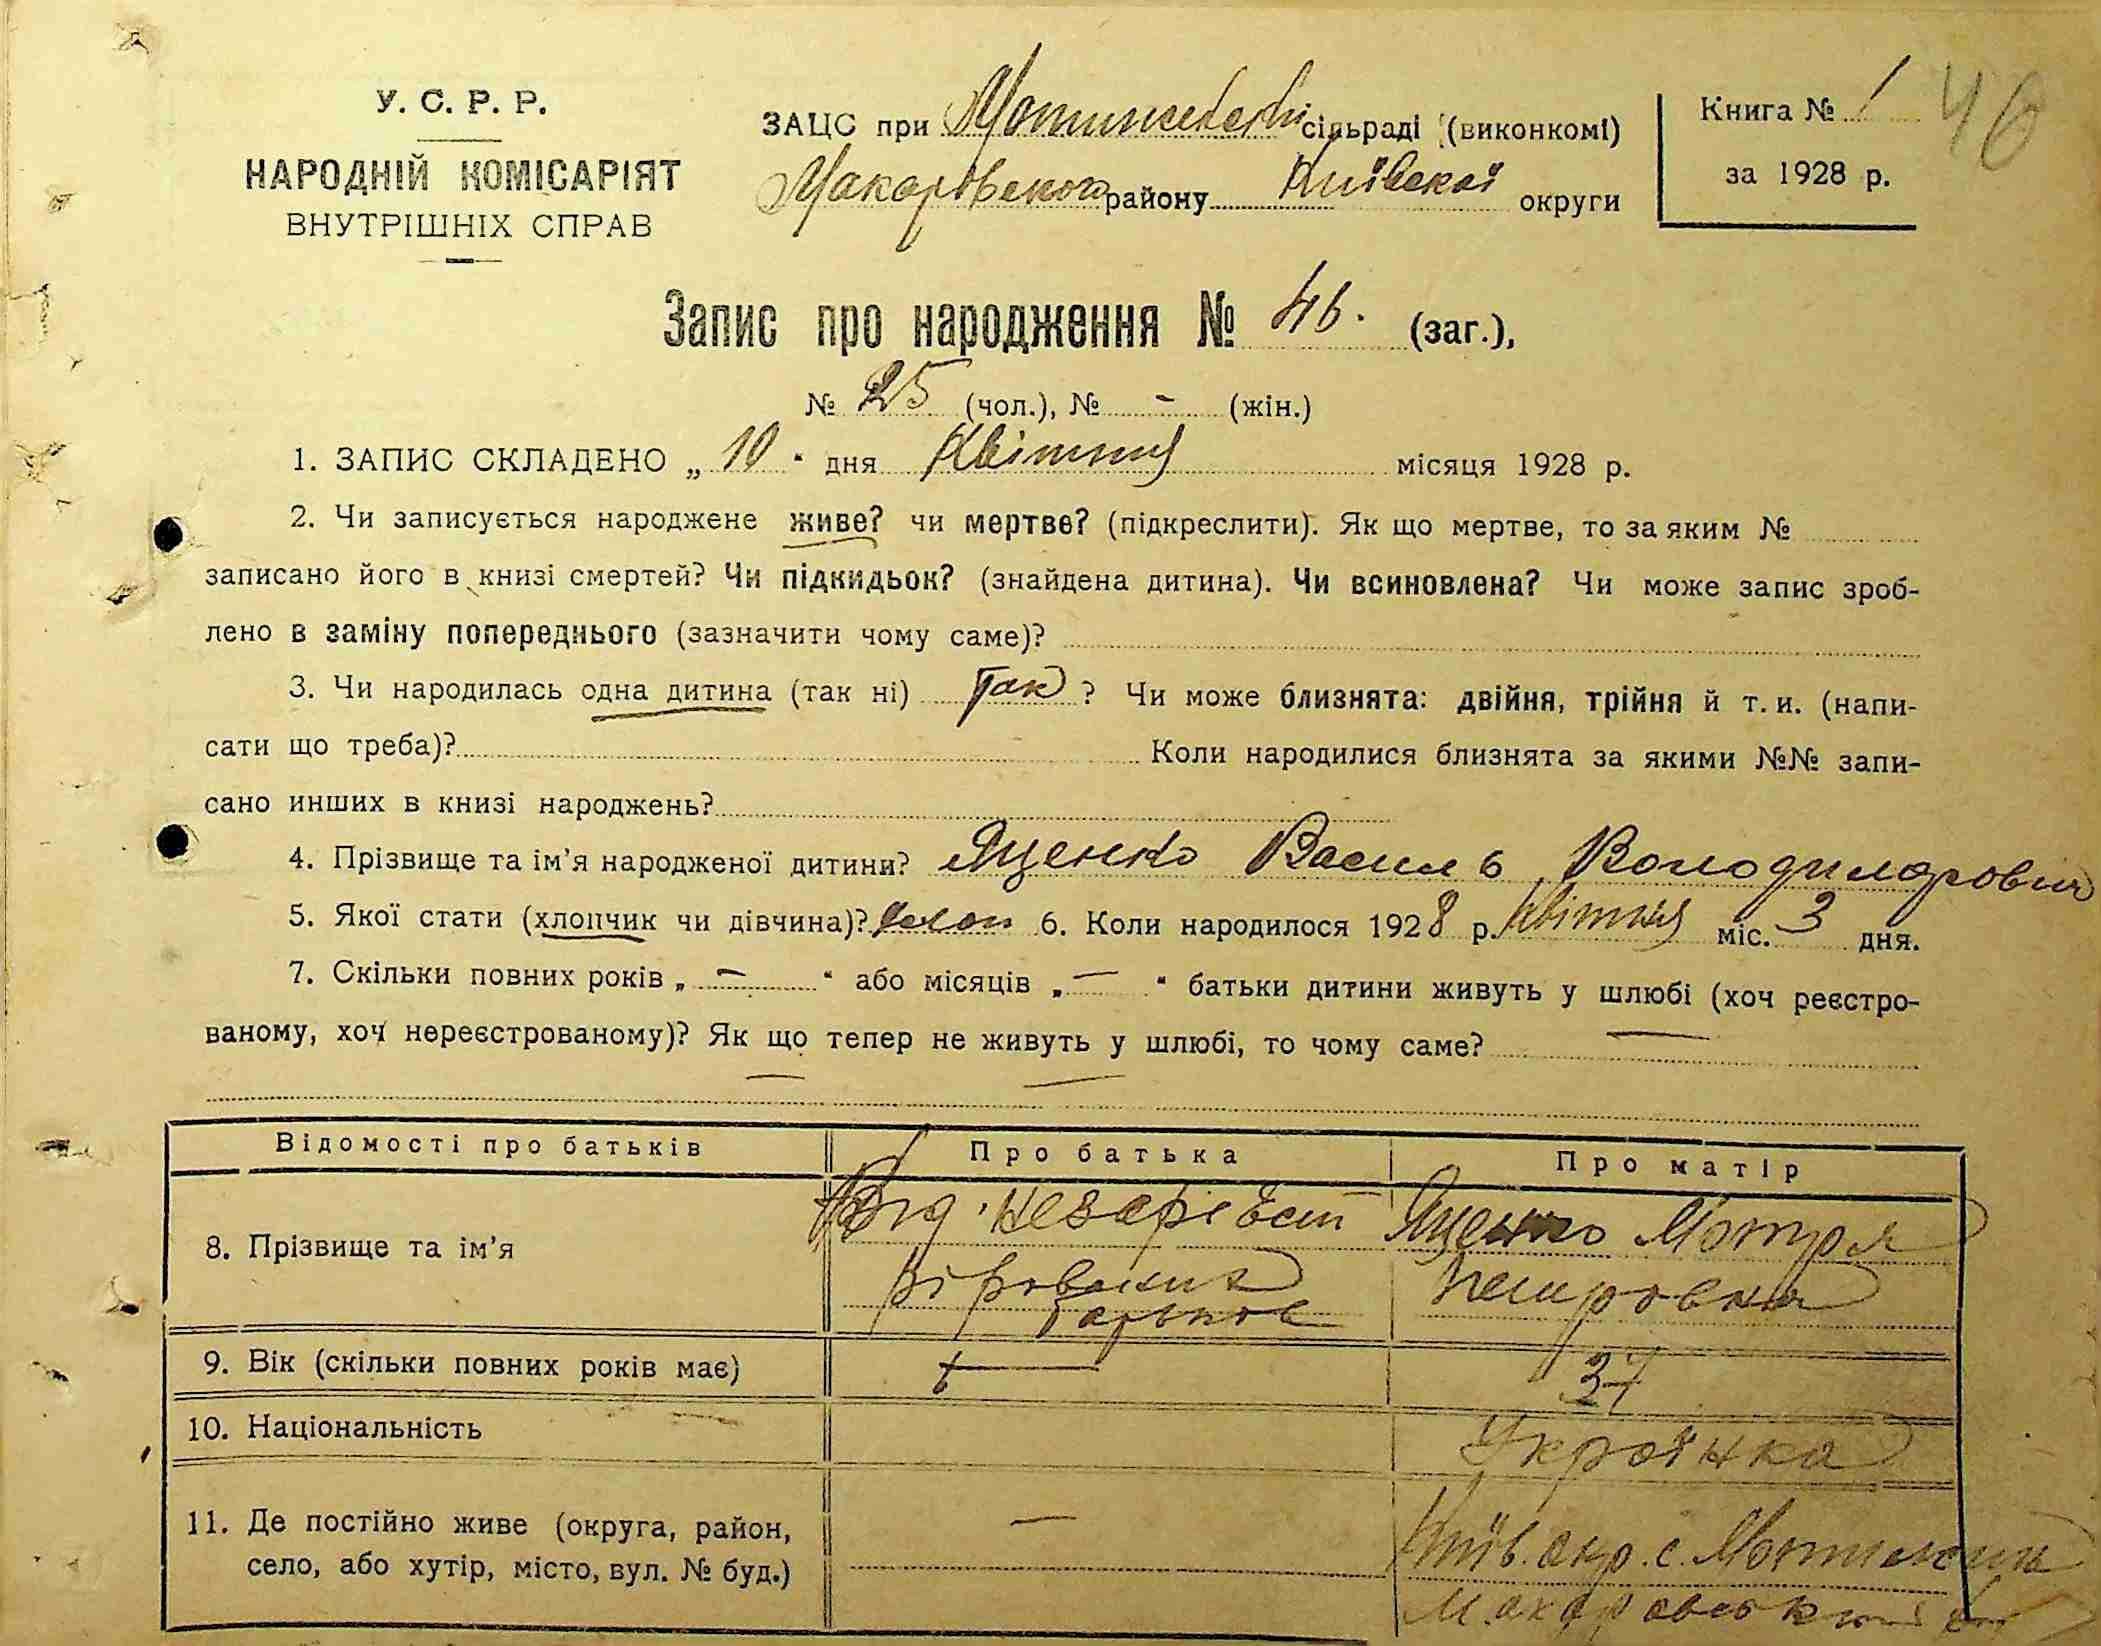 У. С. Р. Р.
НАРОДНІЙ КОМІСАРІЯТ
ВНУТРІШНІХ СПРАВ
ЗАЦС при Мотижевській сільраді (виконкомі)
Макарівського району Київської округи
Книга № 1
за 1928 р.
46
Запис про народження № 46. (заг.),
№ 25 (чол.), № - (жін.)
1. ЗАПИС СКЛАДЕНО „ 10 " дня Квітня місяця 1928 р.
2. Чи записується народжене живе? чи мертве? (підкреслити). Як що мертве, то за яким №
записано його в книзі смертей? Чи підкидьок? (знайдена дитина). Чи всиновлена? Чи може запис зроб-
лено в заміну попереднього (зазначити чому саме)?
3. Чи народилась одна дитина (так ні) Так ? Чи може близнята: двійня, трійня й т. и. (напи-
сати що треба)? Коли народилися близнята за якими №№ запи-
сано инших в книзі народжень?
4. Прізвище та ім'я народженої дитини? Яценко Василь Володимирович
5. Якої стати (хлопчик чи дівчина)? хлоп 6. Коли народилося 1928 р. Квітня міс. 3 дня.
7. Скільки повних років „ — " або місяців „ — " батьки дитини живуть у шлюбі (хоч реєстро-
ваному, хоч нереєстрованому)? Як що тепер не живуть у шлюбі, то чому саме?
Відомості про батьків
Про батька
Про матір
8. Прізвище та ім'я
Від незареєст
Яценко Мотря
Петровна
9. Вік (скільки повних років має)
37
10. Національність
Українка
11. Де постійно живе (округа, район,
село, або хутір, місто, вул. № буд.)
—
Київ. окр. с. Мотижин
Макаровський